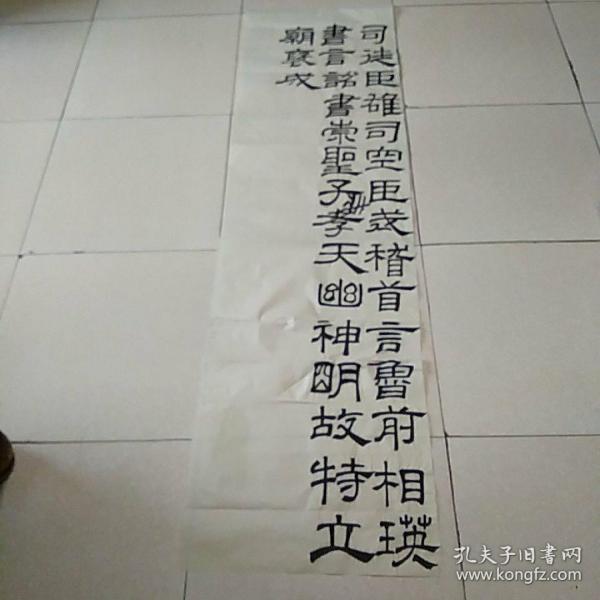 司徒臣雄司空臣戒稽首言魯前相瑛
書言詔書崇聖子孝天幽神明故特立
廟襃成
孔夫子旧书网
www.kongfz.com